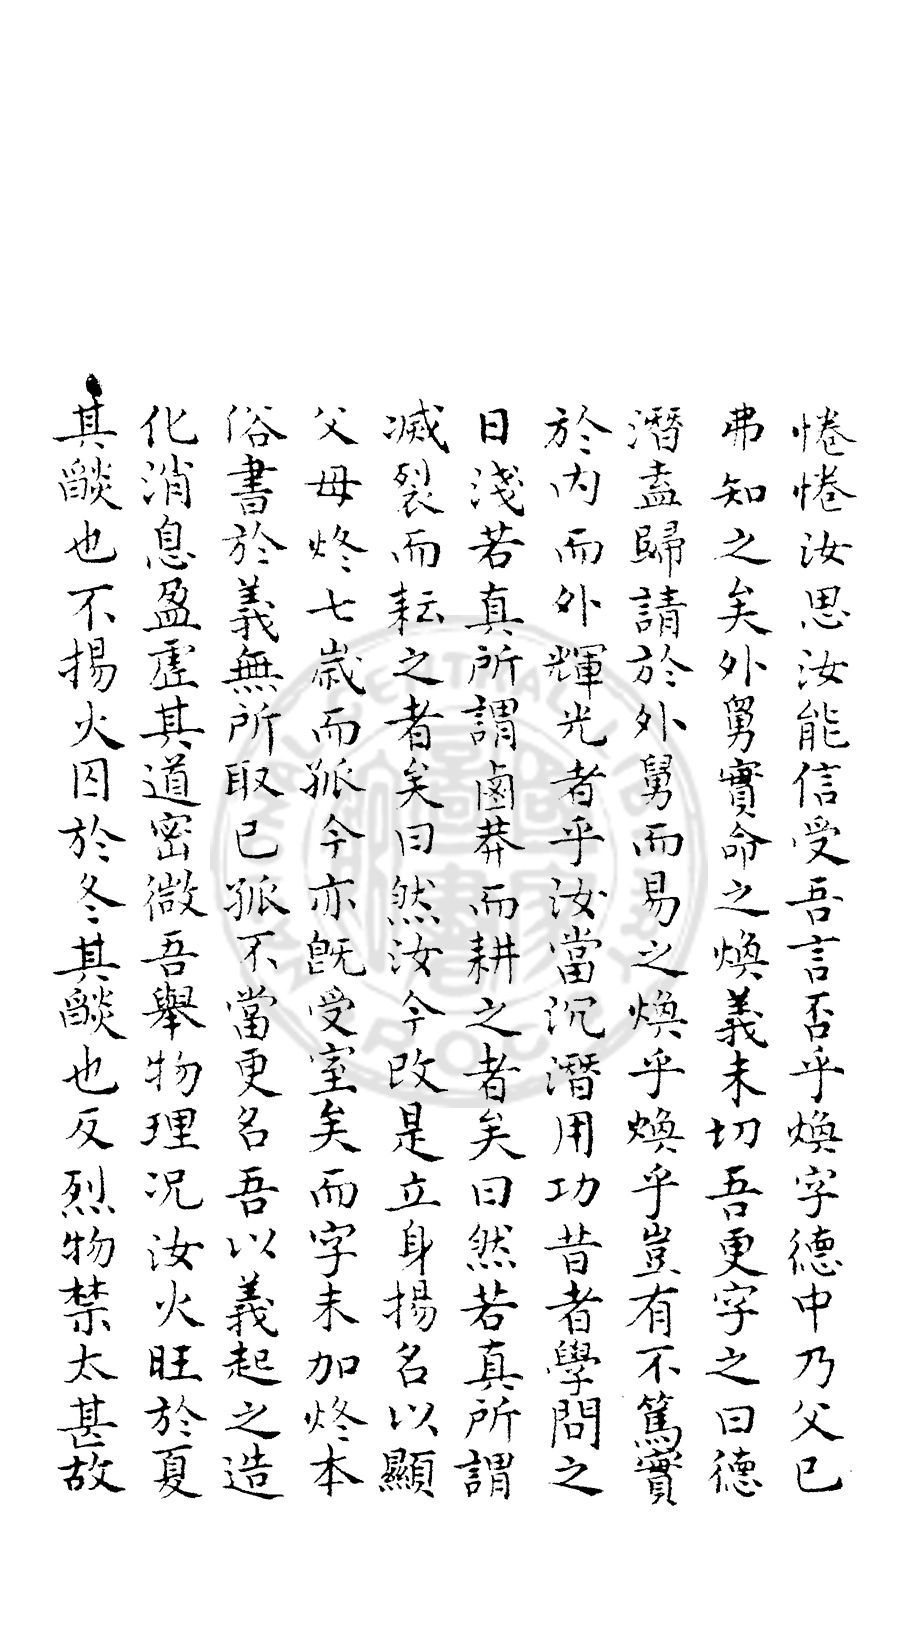 惓惓汝思汝能信受吾言否乎煥字德中乃父已
弗知之矣外舅實命之煥義未切吾更字之曰德
潛盍歸請於外舅而易之煥乎煥乎豈有不篤實
於内而外輝光者乎汝當沉潛用功昔者學問之
日淺若真所謂鹵莽而耕之者矣曰然若真所謂
滅裂而耘之者矣曰然汝今改是立身揚名以顯
父母炵七歲而孤今亦既受室矣而字未加炵本
俗書於義無所取已孤不當更名吾以義起之造
化消息盈虛其道密微吾舉物理況汝火旺於夏
其燄也不揚火囚於冬其燄也反烈物禁太甚故